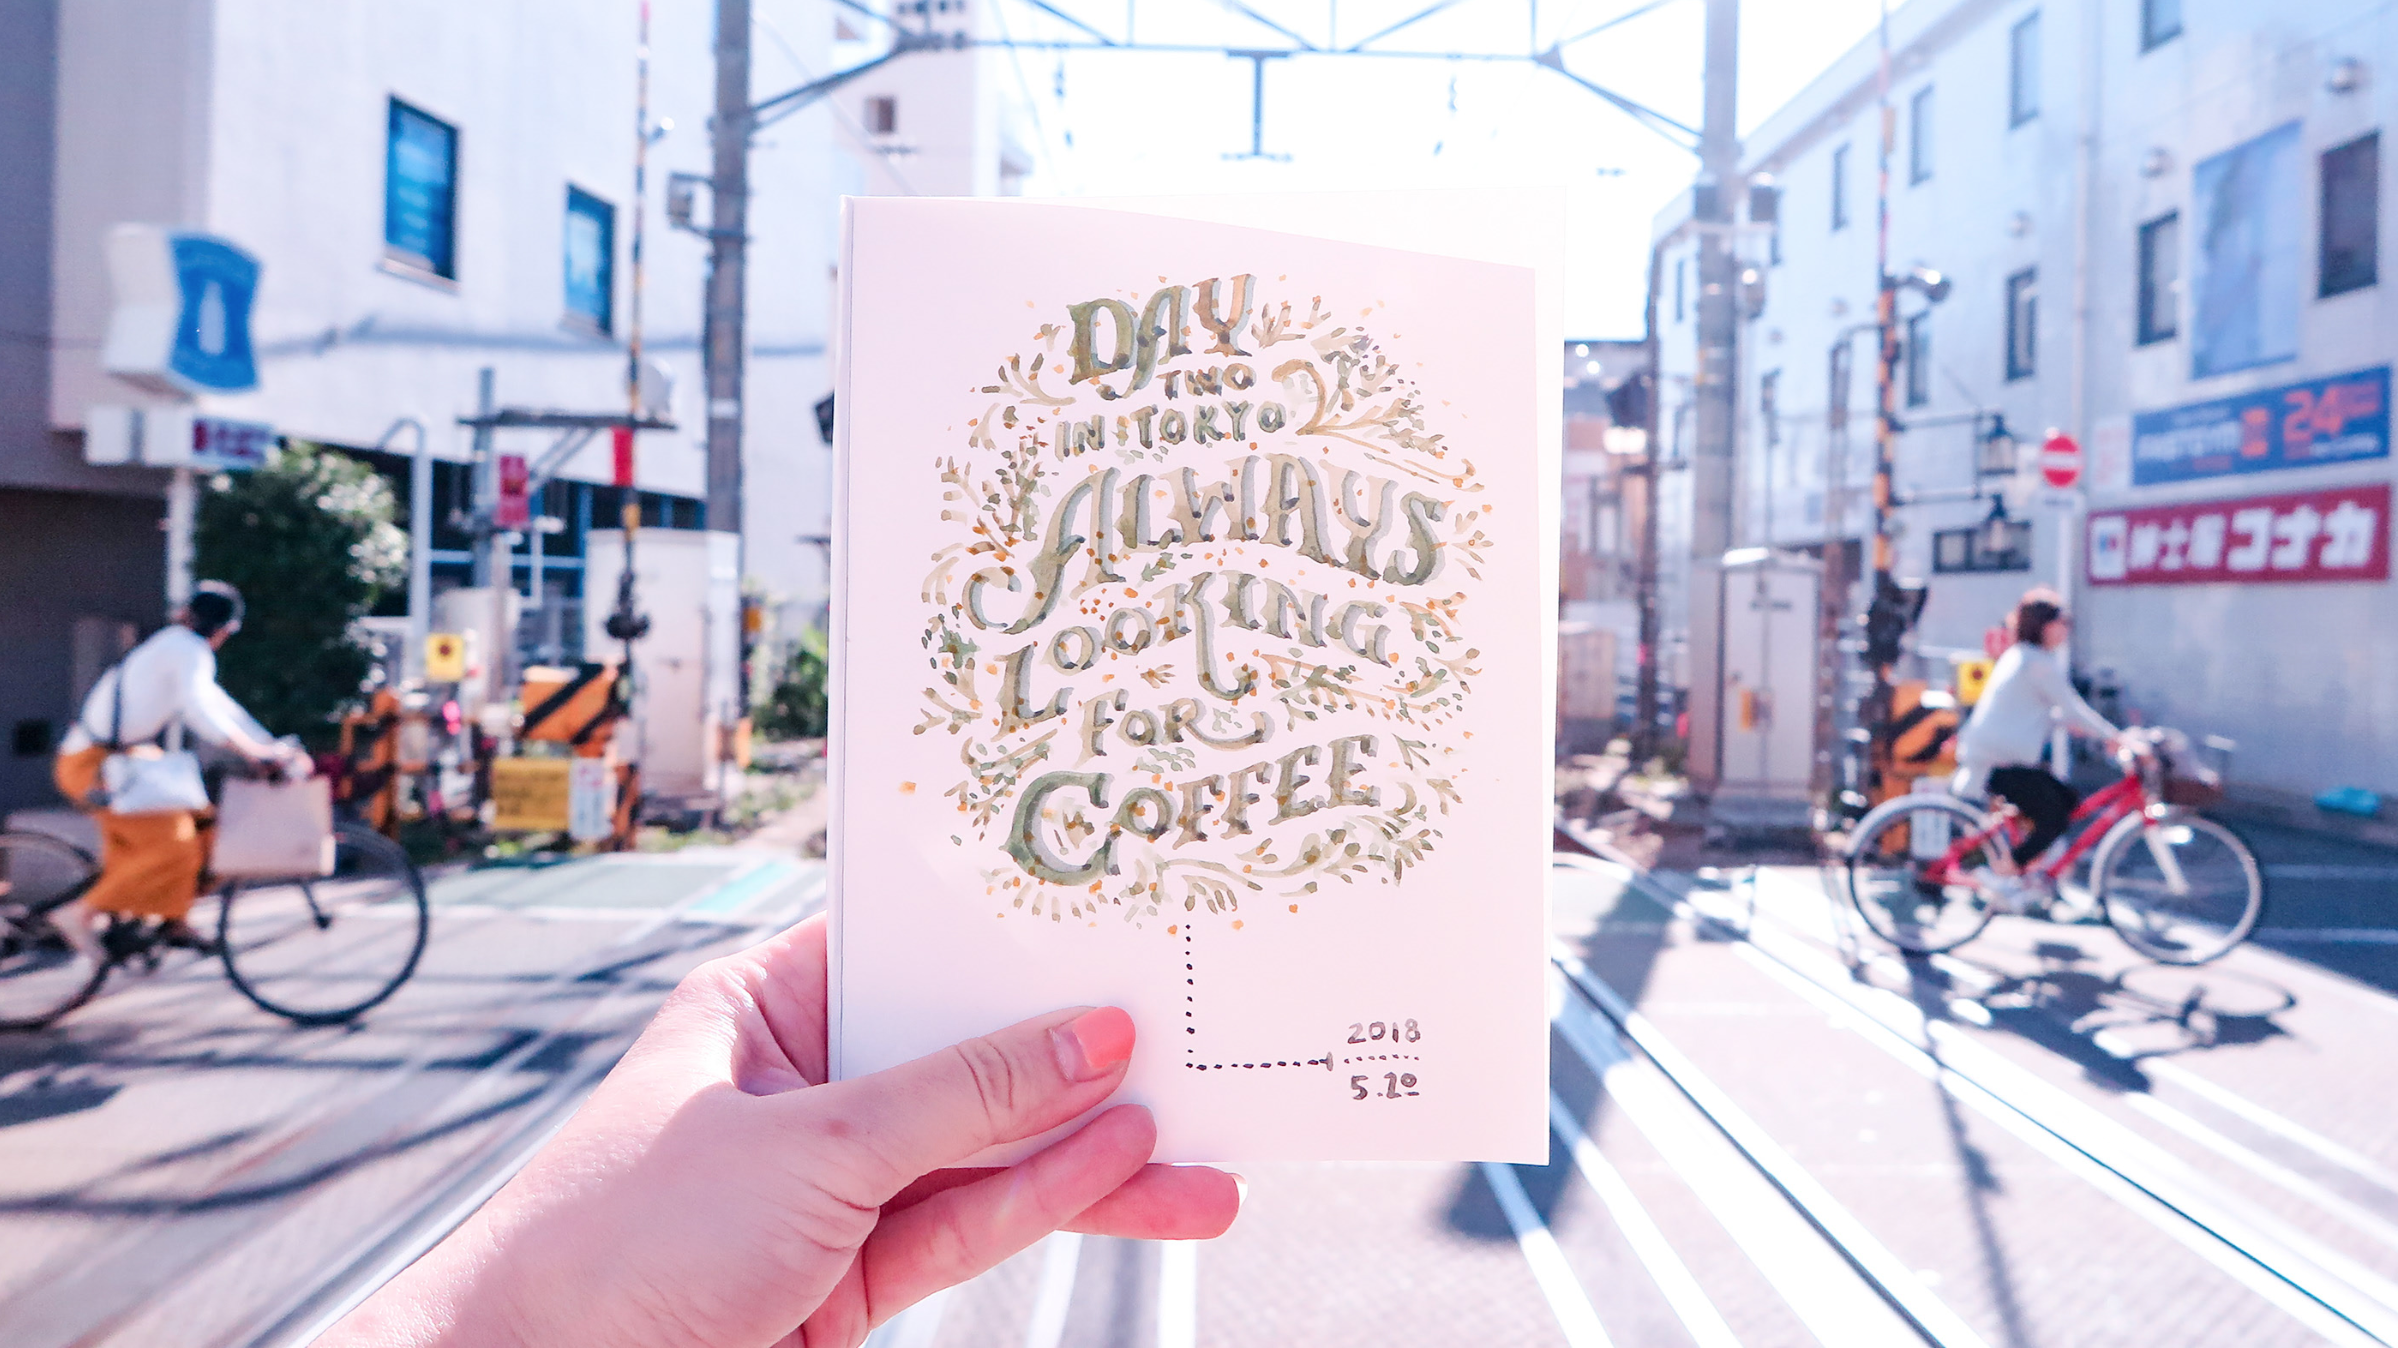 DAY
TWO
IN TOKYO
ALWAYS
LOOKING
FOR
COFFEE
2018
5.20
24
紳士服 コナカ